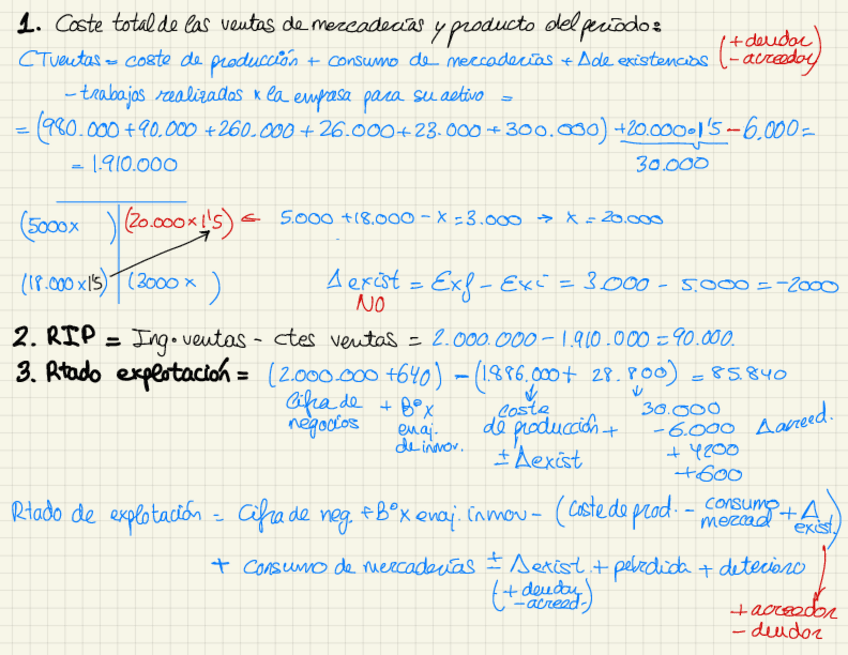 1. Coste total de las ventas de mercaderías y producto del periodo:
CTventas = coste de producción + consumo de mercaderías + Δ de existencias (+ deudor
- acreedor)
- trabajos realizados x la empresa para su activo =
= (980.000 + 90.000 + 260.000 + 26.000 + 23.000 + 300.000) + 20.000·1'5 - 6.000 =
30.000
= 1.910.000
(5000x ) (20.000 x 1'5) ← 5.000 + 18.000 - x = 3.000 → x = 20.000
(18.000 x 1'5) (3000 x )
Δ exist = Exf - Exi = 3.000 - 5.000 = -2000
NO
2. RIP = Ing. ventas - ctes ventas = 2.000.000 - 1.910.000 = 90.000.
3. Rtado explotación = (2.000.000 + 640) - (1.886.000 + 28.800) = 85.840
Cifra de negocios + Bº x enaj. de inmov.
coste de producción + ± Δexist
30.000
- 6.000 Δ acreed.
+ 4200
+ 600
Rtado de explotación = Cifra de neg. + Bº x enaj. inmov - (Coste de prod. - consumo mercad + Δ exist.)
+ consumo de mercaderías ± Δ exist + pérdida + deterioro
(+ deudor
- acreed.)
+ acreedor
- deudor